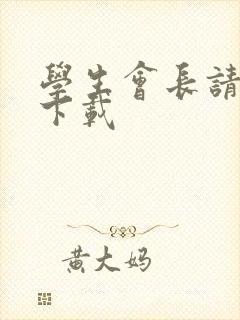 學生會長請
下載
黃大妈